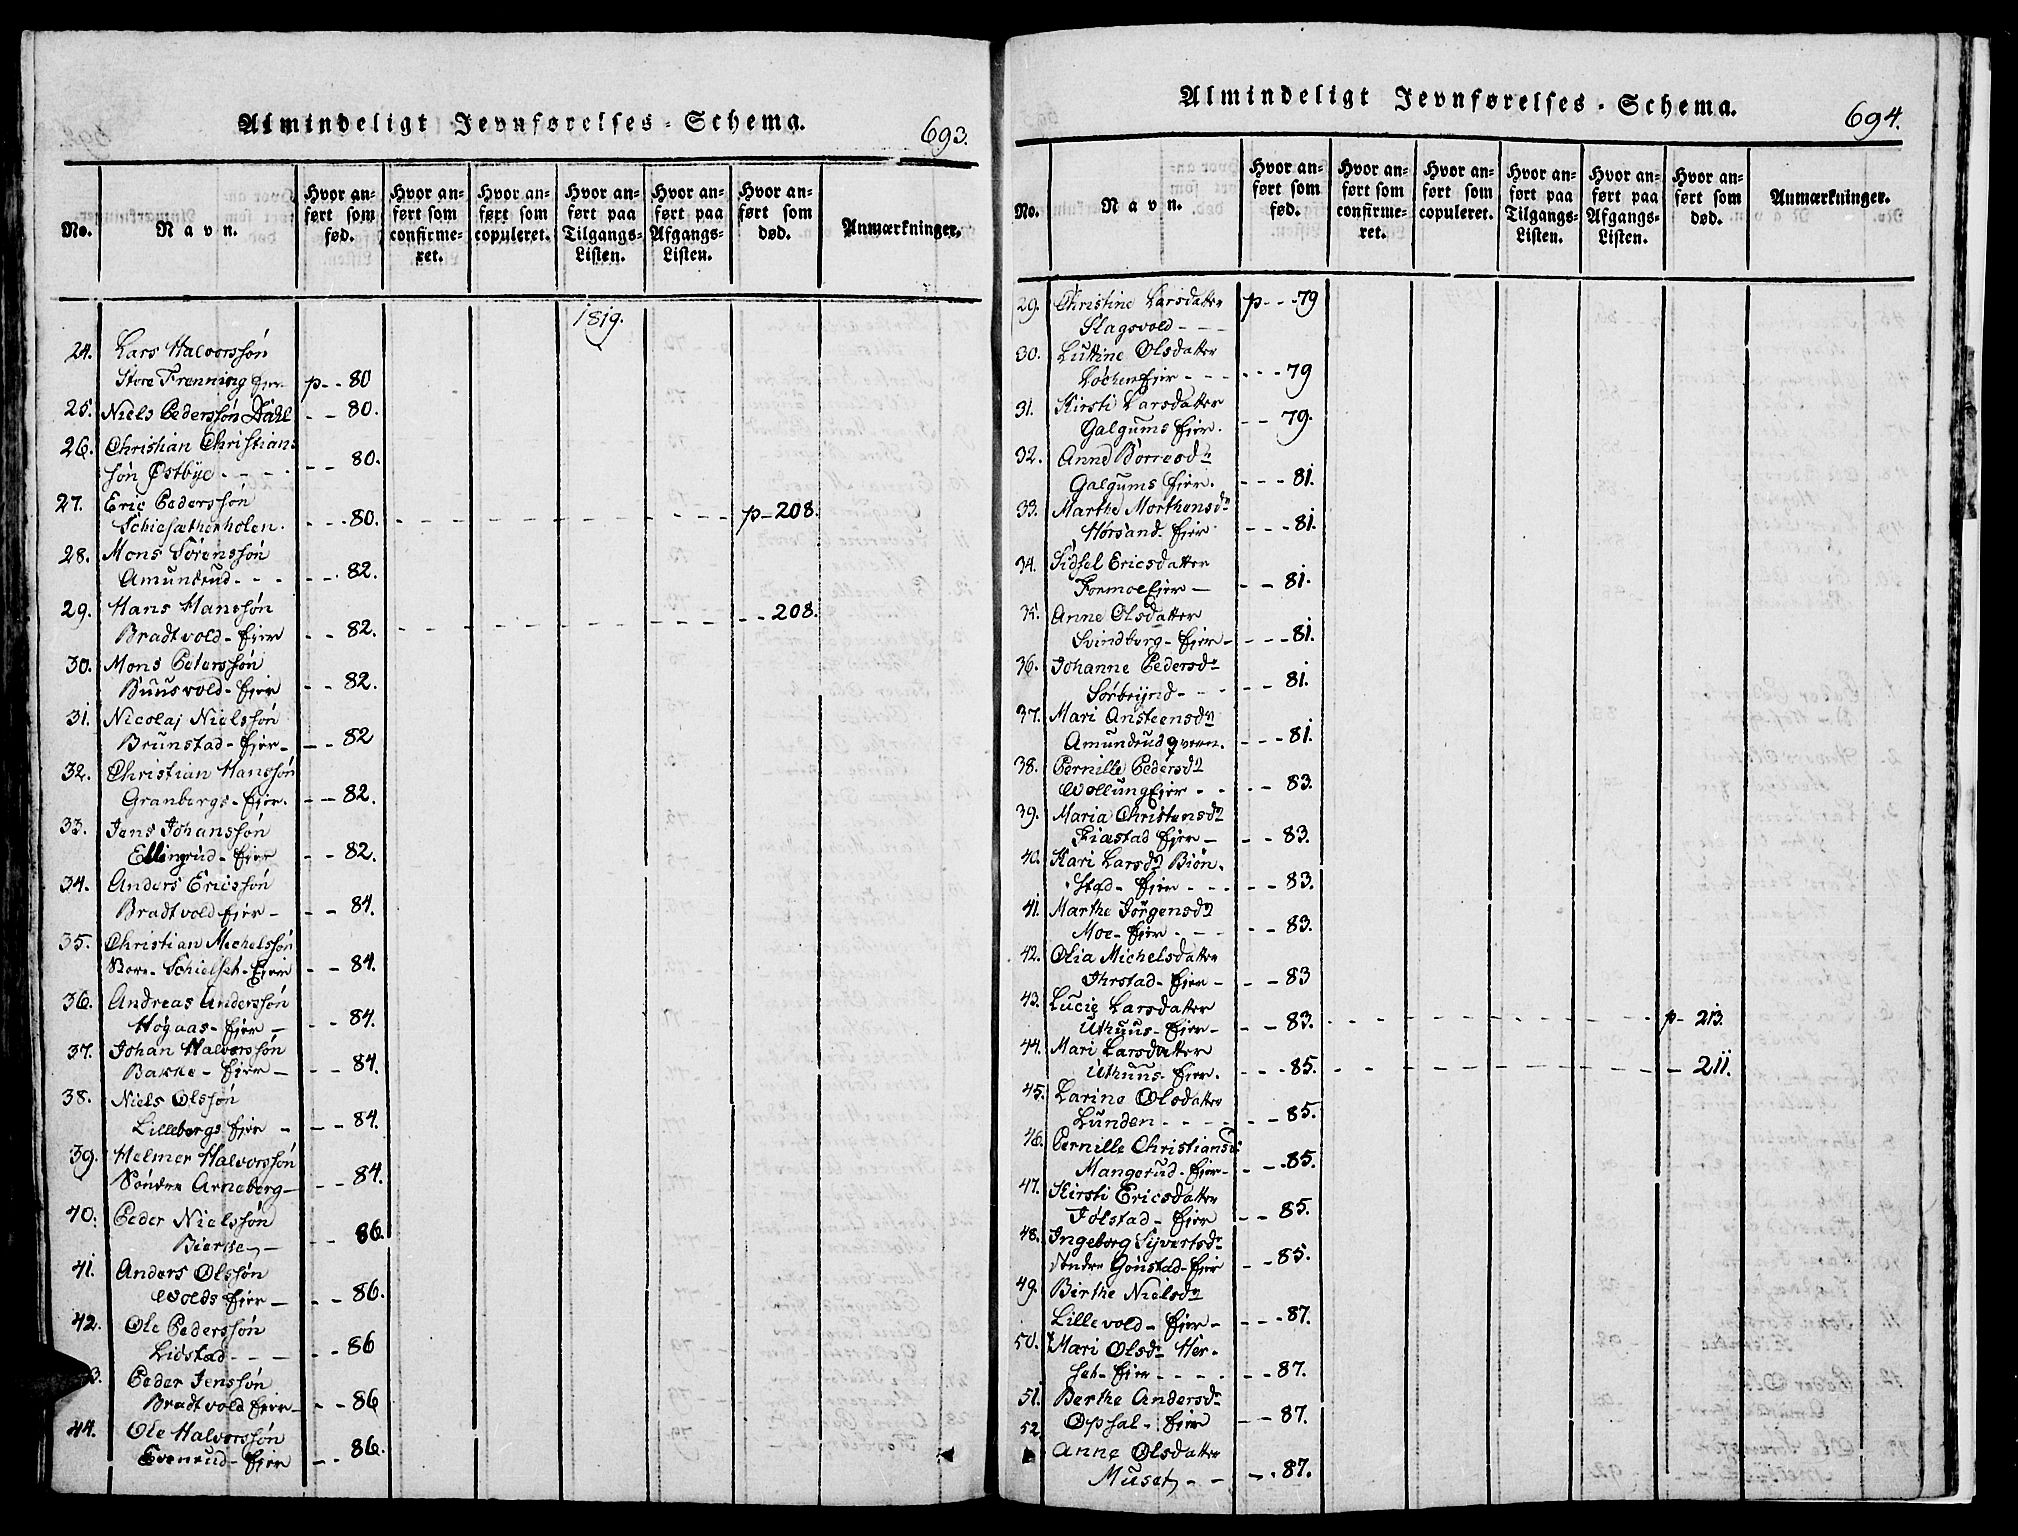 Almindeligt Jevnførelses-Schema.
693.
No.
Navn.
Hvor anført som fød.
Hvor anført som confirmeret.
Hvor anført som copuleret.
Hvor anført paa Tilgangs-Listen.
Hvor anført paa Afgangs-Listen.
Hvor anført som død.
Anmærkninger.
1819.
24. Lars Halvorssøn
Store Frenning Eier p-- 80
25. Niels Pederssøn Dahl -- 80.
26. Christian Christians
søn Østbye ---- 80.
27. Eric Pederssøn
Schiesætherholen. --- 80. p-208.
28. Mons Sørenssøn
Amundrud --- 82.
29. Hans Hanssøn
Bradtvold-Eier -- 82. --208.
30. Mons Peterssøn
Buusvold-Eier -- 82.
31. Nicolaj Nielssøn
Brunstad-Eier- -- 82
32. Christian Hanssøn
Granbergs-Eier. -- 82.
33. Jens Johanssøn
Ellingrud-Eier -- 82.
34. Anders Ericssøn
Bradtvold Eier- -- 84.
35. Christian Michelssøn
Bore-Schielset-Eier -- 84.
36. Andreas Anderssøn
Høgaas-Eier- -- 84.
37. Johan Halvorssøn
Bakke-Eier- -- 84.
38. Niels Olssøn
Lillebergs Eier - -- 84.
39. Helmer Halvorssøn
Søndre Arneberg- -- 84.
40. Peder Nielssøn
Bierke- -- 86.
41. Anders Olssøn
Wolds Eier- -- 86.
42. Ole Pederssøn
Lidstad --- 86
3. Peder Jenssøn
Bradtvold Eier- -- 86
44. Ole Halvorssøn
Evenrud-Eier -- 86.
Almindeligt Jevnførelses-Schema.
694.
No.
Navn.
Hvor anført som fød.
Hvor anført som confirmeret.
Hvor anført som copuleret.
Hvor anført paa Tilgangs-Listen.
Hvor anført paa Afgangs-Listen.
Hvor anført som død.
Anmærkninger.
29. Christine Larsdatter p---79
Slagsvold---
30. Luttine Olsdatter
Løchen Eier--- ---79
31. Kirsti Larsdatter
Galgums Eier. --79.
32. Anne Børresdr
Galgums Eier. ---81.
33. Marthe Morthensdr
Hørsand-Eier ---81.
34. Sidsel Ericsdatter
Formoe Eier- --81.
35. Anne Olsdatter
Svindberg-Eier- ---81.
36. Johanne Pedersdr
Sørbrynd--- --81.
37. Mari Ansteensdr
Amundrudqvern. ---81.
38. Pernille Pedersdr
Wollung Eier-- --83.
39. Maria Christensdr
Fiæstad Eier- --83.
40. Kari Larsdr Biøn-
stad-Eier--- --83.
41. Marthe Jørgensdr
Moe-Eier--- --83.
42. Olia Michelsdatter
Ihrstad-Eier- --83
43. Lucie Larsdatter
Uthuus-Eier- --83. p-213.
44. Mari Larsdatter
Uthuus-Eier. ---85. -211.
45. Larine Olsdatter
Lunden---- --85.
46. Pernille Christiansd:
Mangerud-Eier- --85.
47. Kirsti Ericsdatter
Jølstad-Eier --85.
48. Ingeborg Syvertsdr
søndre Gonstad-Eier --85.
49. Birthe Nielsdr
Lillevold-Eier- ---87.
50. Mari Olsdr Her-
set-Eier---- --87.
51. Berthe Andersdr
Opsal-Eier --87.
52 Anne Olsdatter
Muset-- --87.